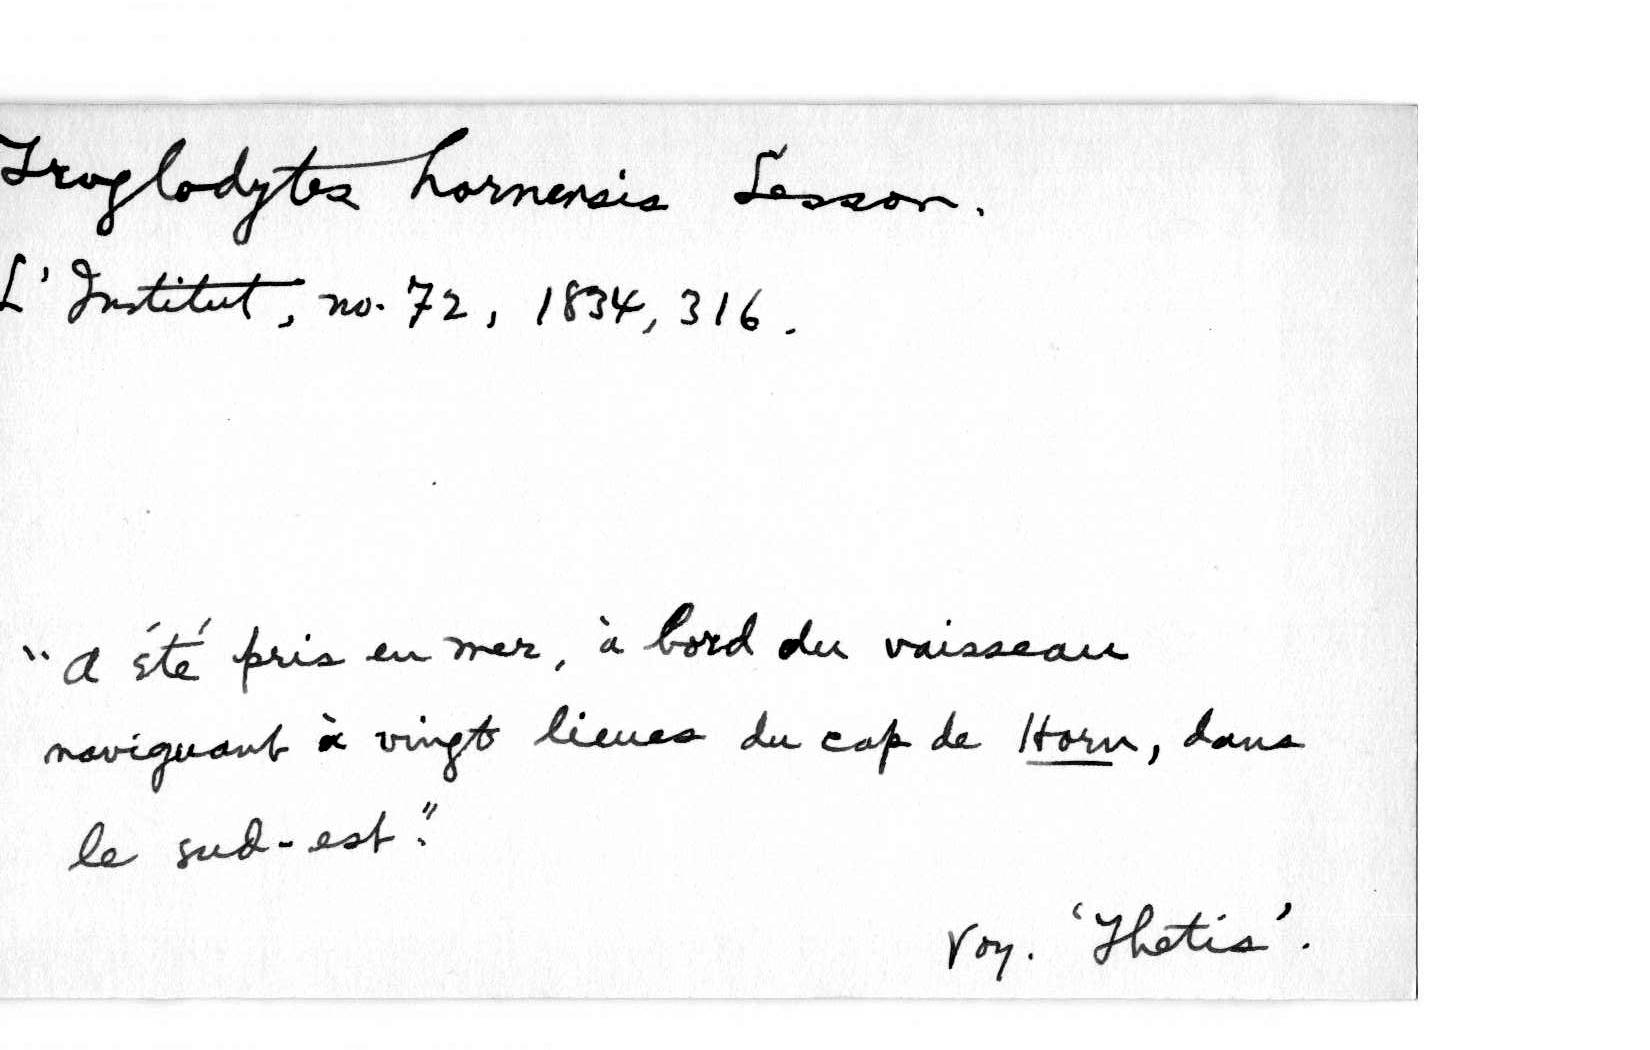 Troglodytes hornensis Lesson.
L'Institut, no. 72, 1834, 316.
"a été pris en mer, à bord du vaisseau
naviguant à vingt lieues du cap de Horn, dans
le sud-est."
Voy. 'Thetis'.